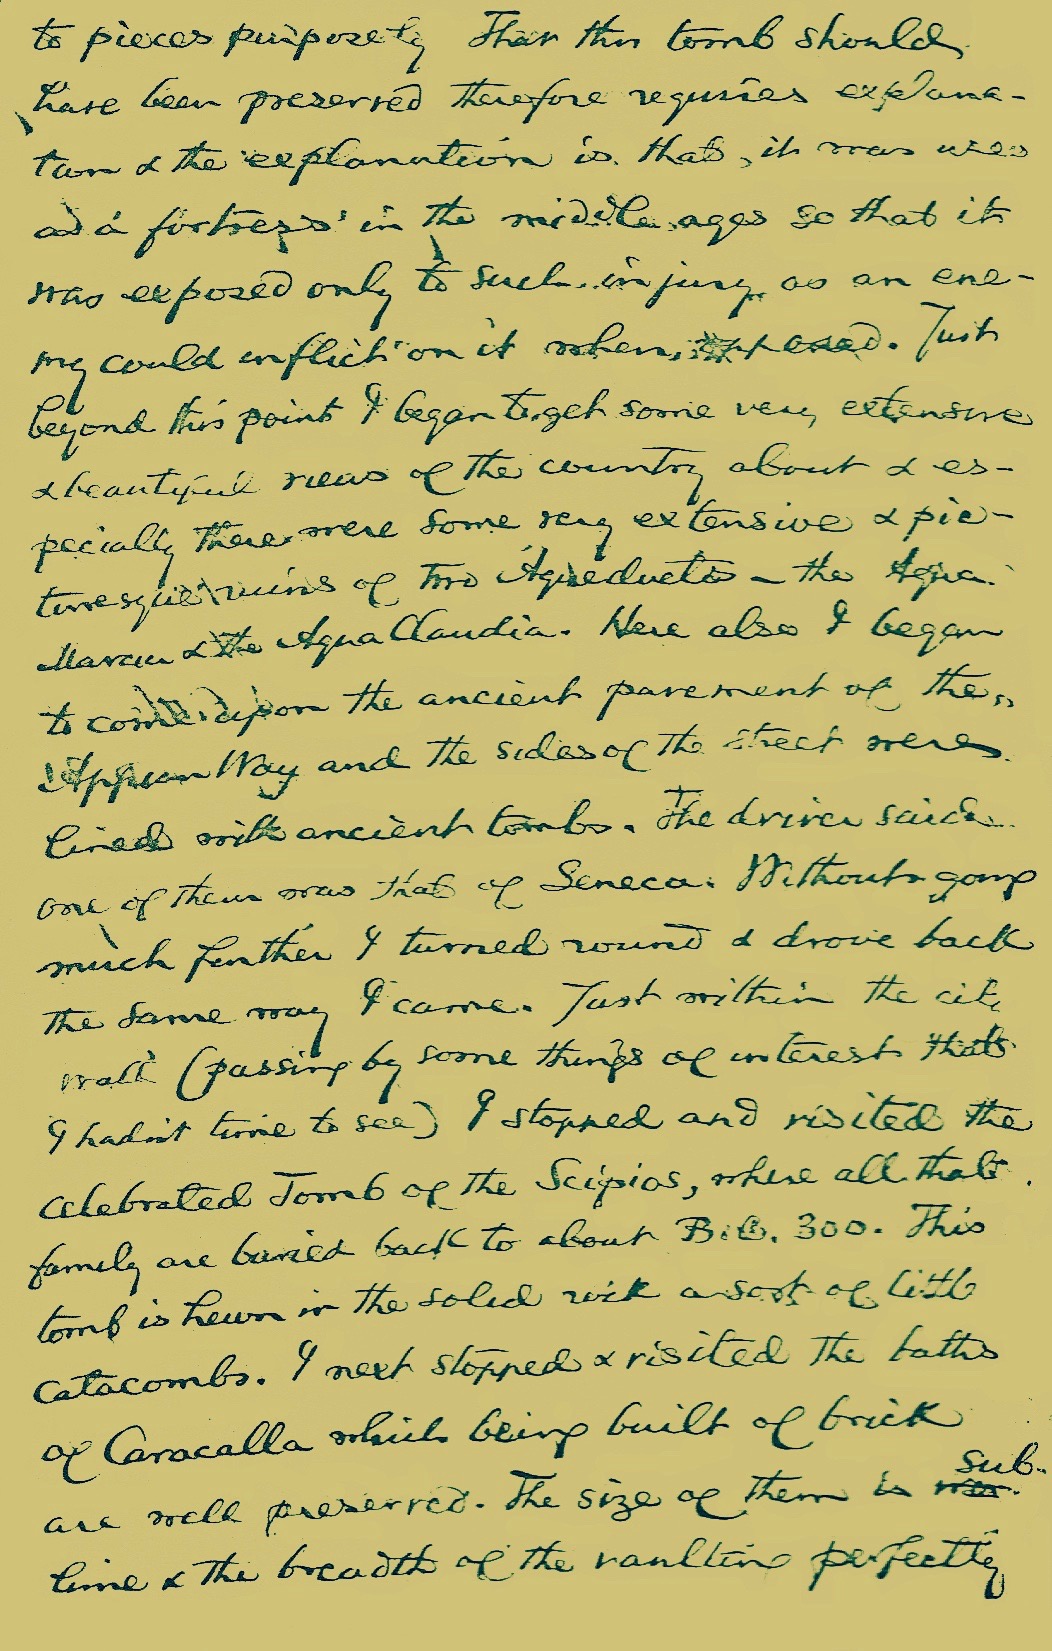 to pieces purposely That this tomb should
have been preserved therefore requires explana-
tion & the explanation is that, it was used
as a fortress in the middle ages so that it
was exposed only to such injury as an ene-
my could inflict on it when. Just
beyond this point I began to get some very extensive
& beautiful views of the country about & es-
pecially there were some very extensive & pic-
turesque ruins of two Aqueducts - the Aqua
Marcia & the Aqua Claudia. Here also I began
to come upon the ancient pavement of the
Appian Way and the sides of the street were
lined with ancient tombs. The driver said
one of them was that of Seneca. Without going
much further I turned round & drove back
the same way I came. Just within the city
wall (passing by some things of interest that
I hadn't time to see) I stopped and visited the
celebrated Tomb of the Scipios, where all that
family are buried back to about B.C. 300. This
tomb is hewn in the solid rock a sort of little
catacombs. I next stopped & visited the baths
of Caracalla which being built of brick
are well preserved. The size of them is sub-
lime & the breadth of the vaulting perfectly